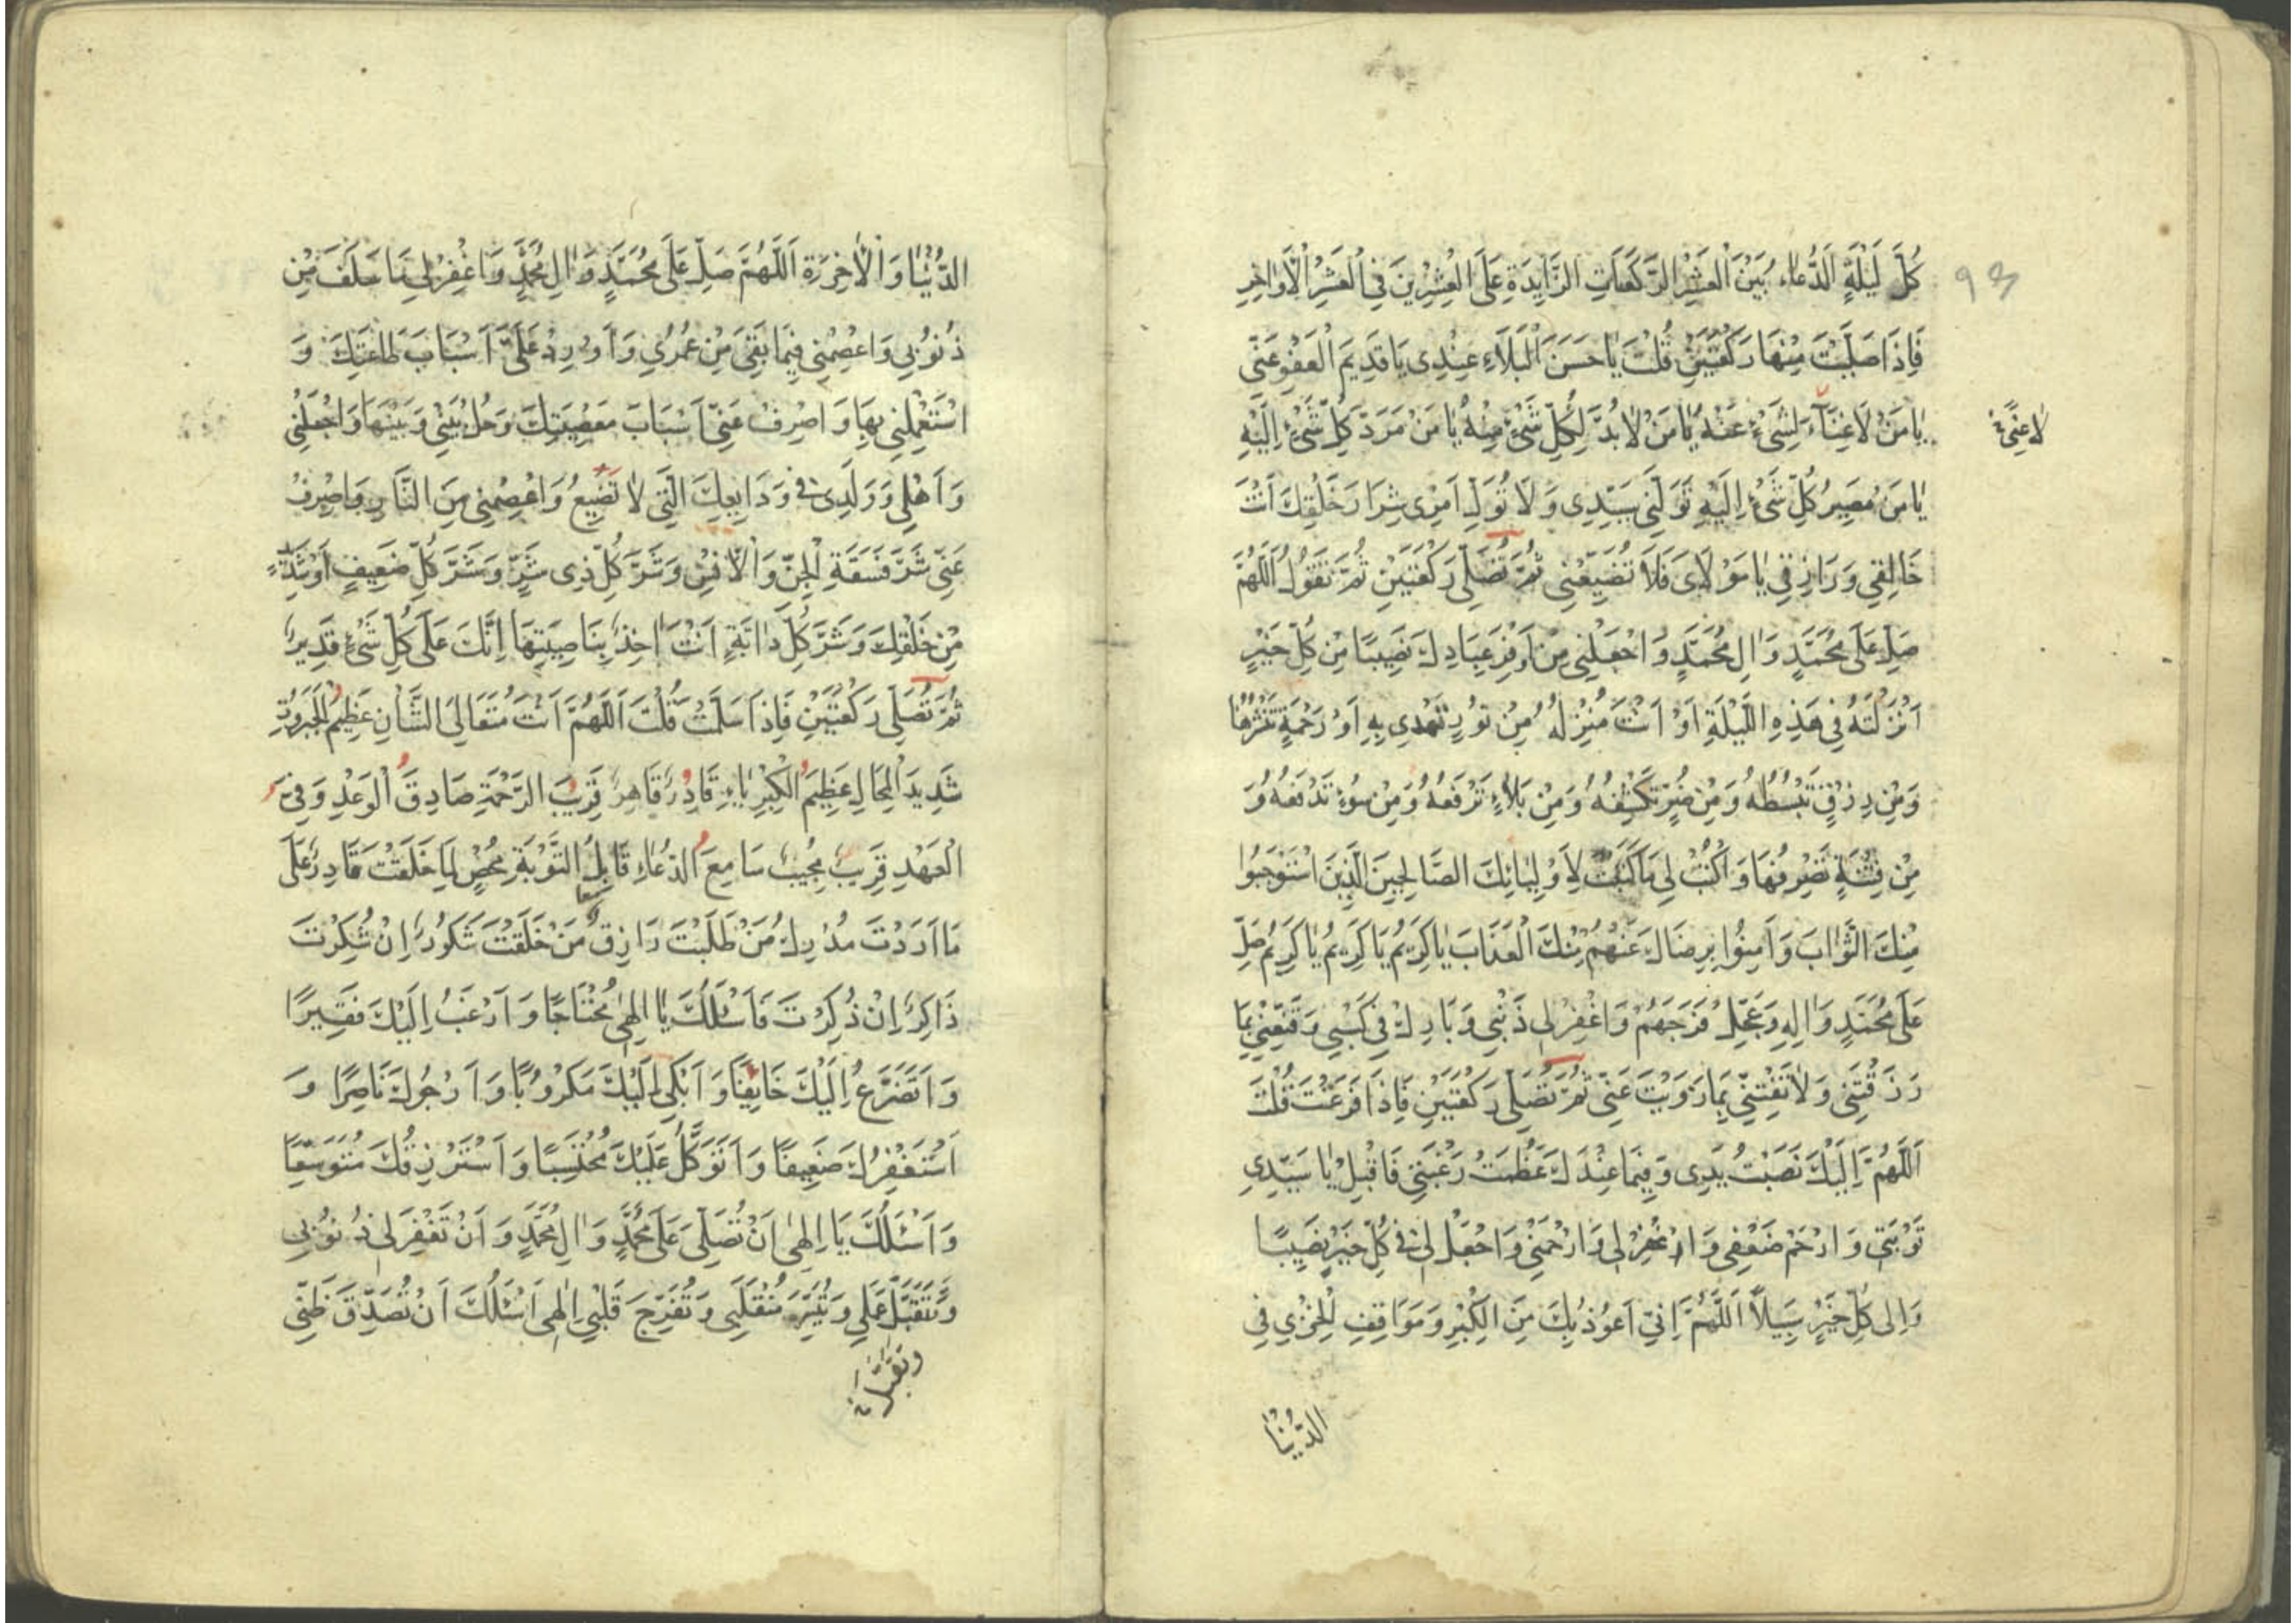 كُلَّ لَيْلَةٍ اَلدُّعَاءُ بَيْنَ الْعَشْرِ الرَّكَعَاتِ الزَّايِدَةِ عَلَى الْعِشْرِينَ فِي الْعَشْرِ الْاَوَاخِرِ
٩٣
فَاِذَا صَلَّيْتَ مِنْهَا رَكْعَتَيْنِ قُلْتَ يَا حَسَنَ الْبَلَاءِ عِنْدِى يَا قَدِيمَ الْعَفْوِ عَنِّي
يَا مَنْ لَا غِنَآءَ لِشَىْءٍ عَنْهُ يَا مَنْ لَا بُدَّ لِكُلِّ شَىْءٍ مِنْهُ يَا مَنْ مَرَدُّ كُلِّ شَىْءٍ اِلَيْهِ
لَا غِنًى
يَا مَنْ مَصِيرُ كُلِّ شَىْءٍ اِلَيْهِ تَوَلَّنِي سَيِّدِى وَلَا تُوَلِّ اَمْرِى شِرَارَ خَلْقِكَ اَنْتَ
خَالِقِي وَرَازِقِي يَا مَوْلَاىَ فَلَا تُضَيِّعْنِي ثُمَّ تُصَلِّى رَكْعَتَيْنِ ثُمَّ تَقُولُ اَللَّهُمَّ
صَلِّ عَلَى مُحَمَّدٍ وَالِ مُحَمَّدٍ وَاجْعَلْنِي مِنْ اَوْفَرِ عِبَادِكَ نَصِيبًا مِنْ كُلِّ خَيْرٍ
اَنْزَلْتَهُ فِي هَذِهِ اللَّيْلَةِ اَوْ اَنْتَ مُنْزِلُهُ مِنْ نُورٍ تَهْدِى بِهِ اَوْ رَحْمَةٍ تَنْشُرُهَا
وَمِنْ رِزْقٍ تَبْسُطُهُ وَمِنْ ضُرٍّ تَكْشِفُهُ وَمِنْ بَلَاءٍ تَرْفَعُهُ وَمِنْ سُوءٍ تَدْفَعُهُ وَ
مِنْ فِتْنَةٍ تَصْرِفُهَا وَاكْتُبْ لِي مَا كَتَبْتَ لِاَوْلِيَائِكَ الصَّالِحِينَ الَّذِينَ اسْتَوْجَبُوا
مِنْكَ الثَّوَابَ وَاَمِنُوا بِرِضَاكَ عَنْهُمْ مِنْكَ الْعَذَابَ يَا كَرِيمُ يَا كَرِيمُ يَا كَرِيمُ صَلِّ
عَلَى مُحَمَّدٍ وَالِهِ وَعَجِّلْ فَرَجَهُمْ وَاغْفِرْ لِي ذَنْبِي وَبَارِكْ فِي كَسْبِي وَقَنِّعْنِي بِمَا
رَزَقْتَنِي وَلَا تَفْتِنِّي بِمَا زَوَيْتَ عَنِّي ثُمَّ تُصَلِّى رَكْعَتَيْنِ فَاِذَا فَرَغْتَ قُلْتَ
اَللَّهُمَّ اِلَيْكَ نَصَبْتُ يَدِى وَفِيمَا عِنْدَكَ عَظُمَتْ رَغْبَتِي فَاقْبَلْ يَا سَيِّدِي
تَوْبَتِي وَارْحَمْ ضَعْفِي وَاغْفِرْ لِي وَارْحَمْنِي وَاجْعَلْ لِي فِي كُلِّ خَيْرٍ نَصِيبًا
وَاِلى كُلِّ خَيْرٍ سَبِيلًا اَللَّهُمَّ اِنِّي اَعُوذُ بِكَ مِنَ الْكِبْرِ وَمَوَاقِفِ الْخِزْيِ فِي
الدُّنْيَا
الدُّنْيَا وَالْاخِرَةِ اَللَّهُمَّ صَلِّ عَلَى مُحَمَّدٍ وَالِ مُحَمَّدٍ وَاغْفِرْ لِي مَا سَلَفَ مِنْ
ذُنُوبِي وَاعْصِمْنِي فِيمَا بَقِيَ مِنْ عُمُرِي وَاَوْرِدْ عَلَىَّ اَسْبَابَ طَاعَتِكَ وَ
اسْتَعْمِلْنِي بِهَا وَاصْرِفْ عَنِّي اَسْبَابَ مَعْصِيَتِكَ وَحُلْ بَيْنِي وَبَيْنَهَا وَاجْعَلْنِي
وَاَهْلِي وَوَلَدِى فِي وَدَايِعِكَ الَّتِي لَا تَضِيعُ وَاعْصِمْنِي مِنَ النَّارِ وَاصْرِفْ
عَنِّي شَرَّ فَسَقَةِ الْجِنِّ وَالْاِنْسِ وَشَرَّ كُلِّ ذِى شَرٍّ وَشَرَّ كُلِّ ضَعِيفٍ اَوْ شَدِيدٍ
مِنْ خَلْقِكَ وَشَرَّ كُلِّ دَابَّةٍ اَنْتَ اخِذٌ بِنَاصِيَتِهَا اِنَّكَ عَلَى كُلِّ شَىْءٍ قَدِيرٌ
ثُمَّ تُصَلِّى رَكْعَتَيْنِ فَاِذَا سَلَّمْتَ قُلْتَ اَللَّهُمَّ اَنْتَ مُتَعَالِى الشَّانِ عَظِيمُ الْجَبَرُوتِ
شَدِيدُ الْمِحَالِ عَظِيمُ الْكِبْرِيَاءِ قَادِرٌ قَاهِرٌ قَرِيبُ الرَّحْمَةِ صَادِقُ الْوَعْدِ وَفِيُّ
الْعَهْدِ قَرِيبٌ مُجِيبٌ سَامِعُ الدُّعَاءِ قَابِلُ التَّوْبَةِ مُحْصٍ لِمَا خَلَقْتَ قَادِرٌ عَلَى
مَا اَرَدْتَ مُدْرِكُ مَنْ طَلَبْتَ رَازِقُ مَنْ خَلَقْتَ شَكُورٌ اِنْ شُكِرْتَ
ذَاكِرٌ اِنْ ذُكِرْتَ فَاَسْئَلُكَ يَا اِلهِي مُحْتَاجًا وَاَرْغَبُ اِلَيْكَ فَقِيرًا
وَاَتَضَرَّعُ اِلَيْكَ خَايِفًا وَاَبْكِي اِلَيْكَ مَكْرُوبًا وَاَرْجُوكَ نَاصِرًا وَ
اَسْتَغْفِرُكَ ضَعِيفًا وَاَتَوَكَّلُ عَلَيْكَ مُحْتَسِبًا وَاَسْتَرْزِقُكَ مُتَوَسِّعًا
وَاَسْئَلُكَ يَا اِلهِي اَنْ تُصَلِّىَ عَلَى مُحَمَّدٍ وَالِ مُحَمَّدٍ وَاَنْ تَغْفِرَ لِي ذُنُوبِي
وَتَتَقَبَّلَ عَمَلِي وَتُيَسِّرَ مُنْقَلَبِي وَتُفَرِّجَ قَلْبِي اِلهِي اَسْئَلُكَ اَنْ تُصَدِّقَ ظَنِّي